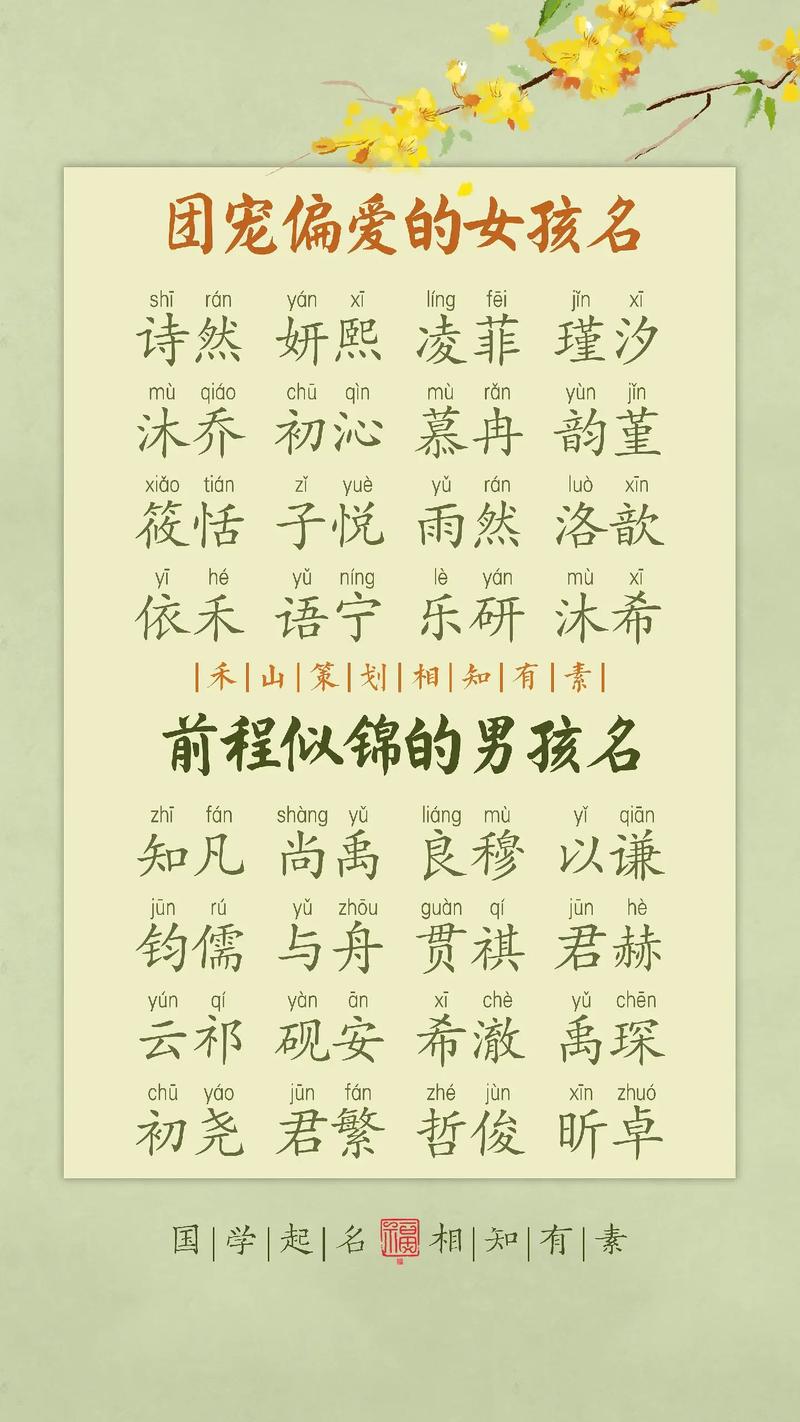 团宠偏爱的女孩名
shī rán yán xī líng fēi jǐn xī
诗然 妍熙 凌菲 瑾汐
mù qiáo chū qìn mù rǎn yùn jǐn
沐乔 初沁 慕冉 韵堇
xiǎo tián zǐ yuè yǔ rán luò xīn
筱恬 子悦 雨然 洛歆
yī hé yǔ níng lè yán mù xī
依禾 语宁 乐研 沐希
|禾|山|策|划|相|知|有|素|
前程似锦的男孩名
zhī fán shàng yǔ liáng mù yǐ qiān
知凡 尚禹 良穆 以谦
jūn rú yǔ zhōu guàn qí jūn hè
钧儒 与舟 贯祺 君赫
yún qí yàn ān xī chè yǔ chēn
云祁 砚安 希澈 禹琛
chū yáo jūn fán zhé jùn xīn zhuó
初尧 君繁 哲俊 昕卓
国|学|起|名 福 相|知|有|素